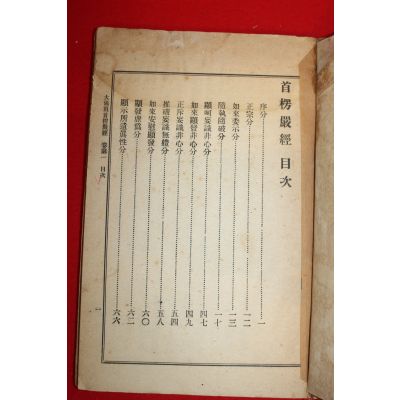 首楞嚴經 目次
序分 一
正宗分 一二
如來委示分 一三
隨執隨破分 一十
顯呵妄識非心分 四七
如來顯發非心分 四九
正斥妄識非心分 五四
推破妄識無體分 五八
如來安慰顯發分 六〇
顯發虛爲分 六二
顯示所遺眞性分 六六
大佛頂首楞嚴經 卷第一 目次
一